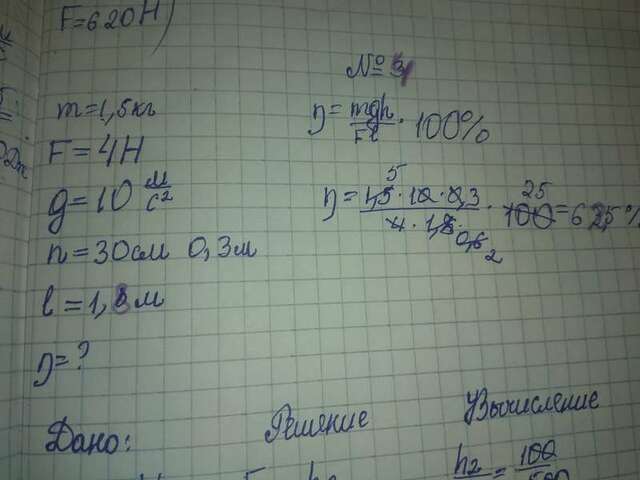 F=620Н)
№ 3
m=1,5кг
F=4Н
g=10 м/с²
h=30см 0,3м
l=1,8м
η=?
η= mgh/Fl · 100%
5 25
η= 1,5·10·0,3/4·1,8 · 100=62,5%
0,6 2
Дано: Решение Вычисление
h2 = 100